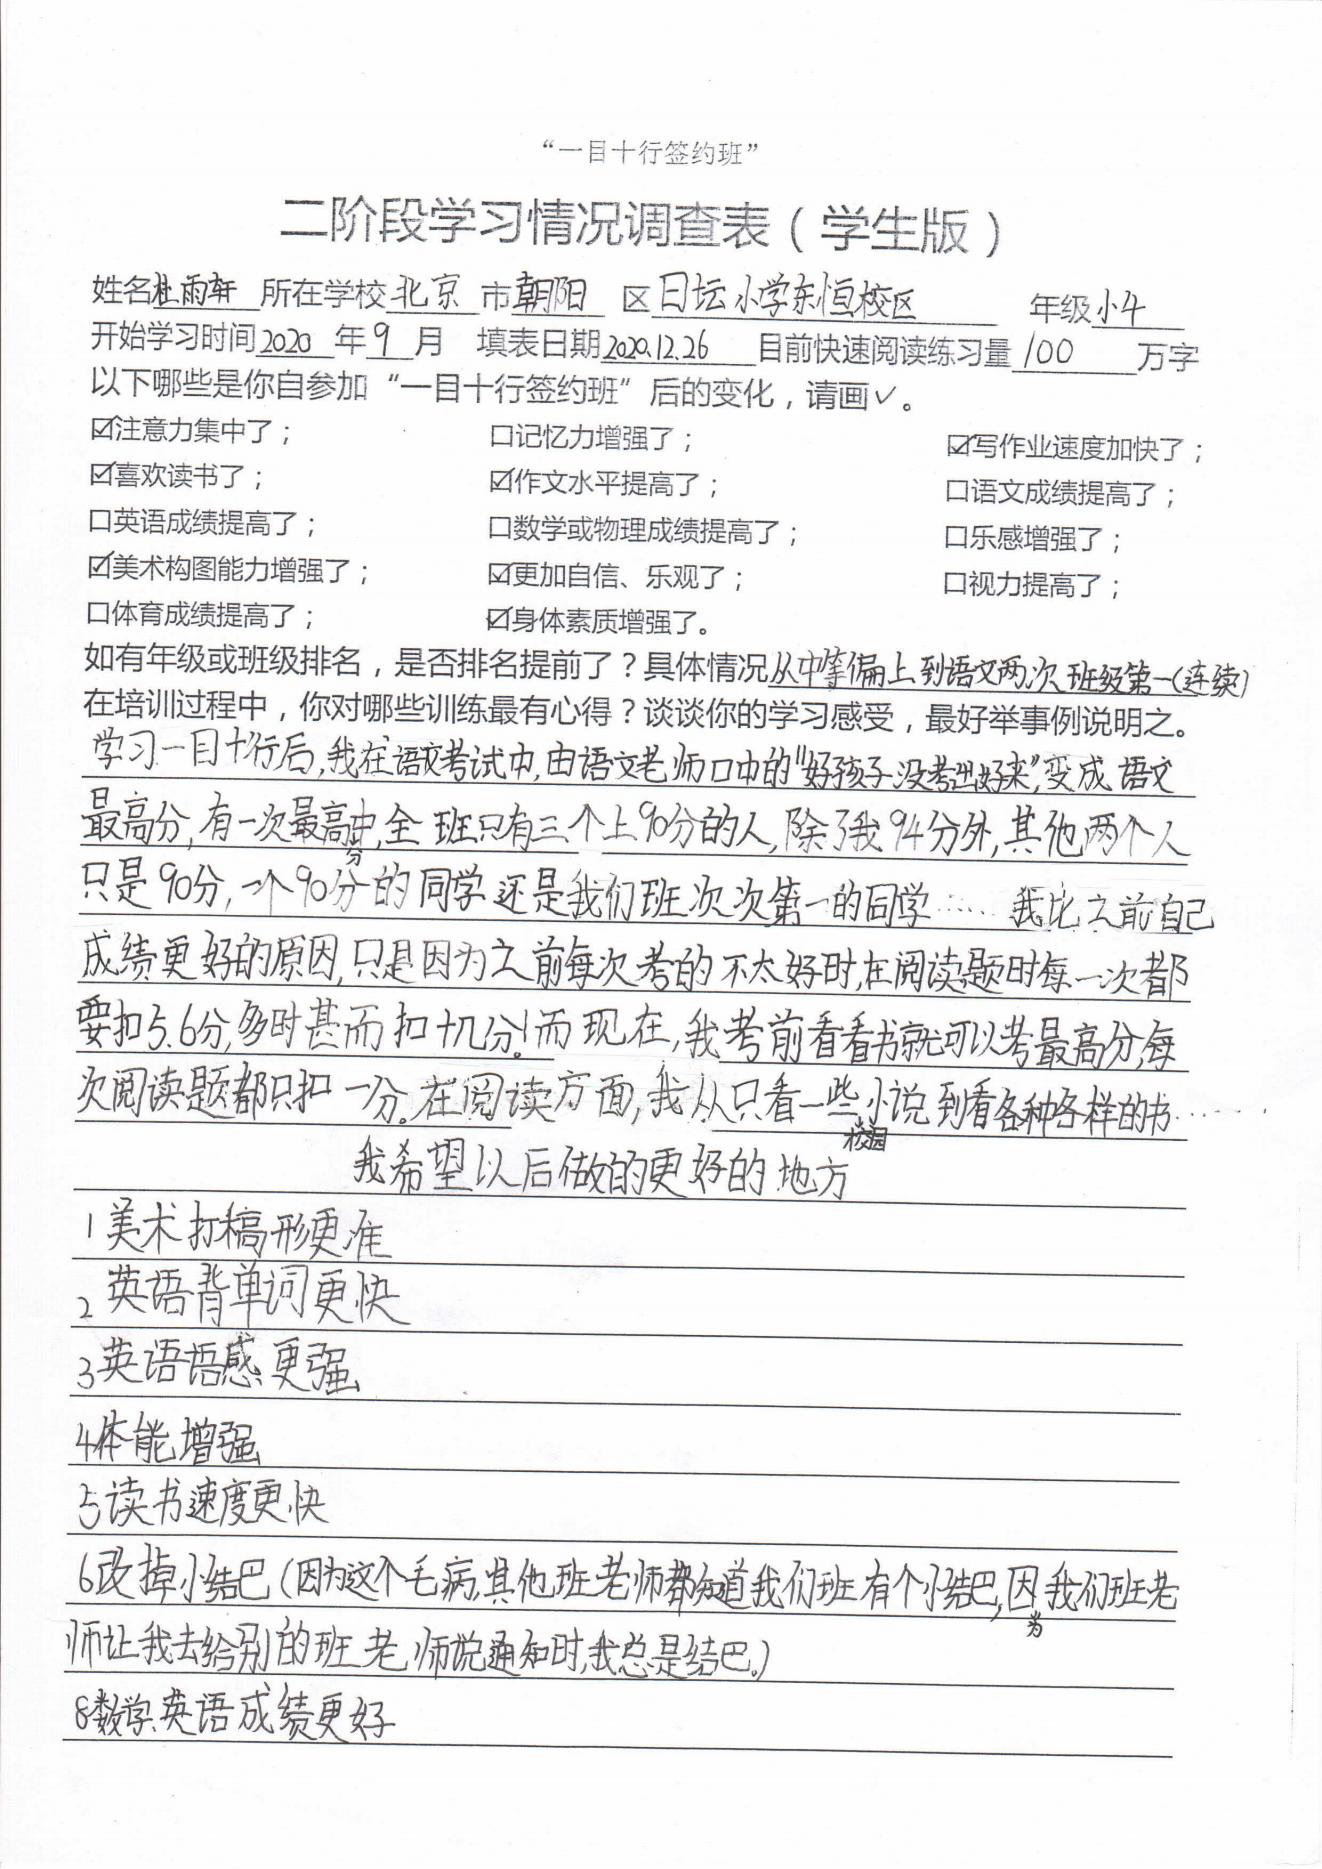 “一目十行签约班”
二阶段学习情况调查表（学生版）
姓名杜雨轩 所在学校北京 市朝阳 区日坛小学东恒校区 年级小4
开始学习时间2020年9月 填表日期2020.12.26 目前快速阅读练习量100万字
以下哪些是你自参加“一目十行签约班”后的变化，请画✓。
☑注意力集中了； 口记忆力增强了； ☑写作业速度加快了；
☑喜欢读书了； ☑作文水平提高了； 口语文成绩提高了；
口英语成绩提高了； 口数学或物理成绩提高了； 口乐感增强了；
☑美术构图能力增强了； ☑更加自信、乐观了； 口视力提高了；
口体育成绩提高了； ☑身体素质增强了。
如有年级或班级排名，是否排名提前了？具体情况从中等偏上到语文两次班级第一(连续)
在培训过程中，你对哪些训练最有心得？谈谈你的学习感受，最好举事例说明之。
学习一目十行后,我在语文考试中,由语文老师口中的"好孩子没考出好来",变成语文
最高分,有一次最高分中,全班只有三个上90分的人,除了我94分外,其他两个人
只是90分,一个90分的同学还是我们班次次第一的同学……我比之前自己
成绩更好的原因,只是因为之前每次考的不太好时,在阅读题时每一次都
要扣5.6分,多时甚而扣十几分!而现在,我考前看看书就可以考最高分,每
次阅读题都只扣一分。在阅读方面,我从只看一些校园小说到看各种各样的书……
我希望以后做的更好的地方
1美术打稿形更准
2英语背单词更快
3英语语感更强
4体能增强
5读书速度更快
6改掉小结巴(因为这个毛病,其他班老师都知道我们班有个小结巴,因为我们班老
师让我去给别的班老师说通知时,我总是结巴。)
8数学、英语成绩更好